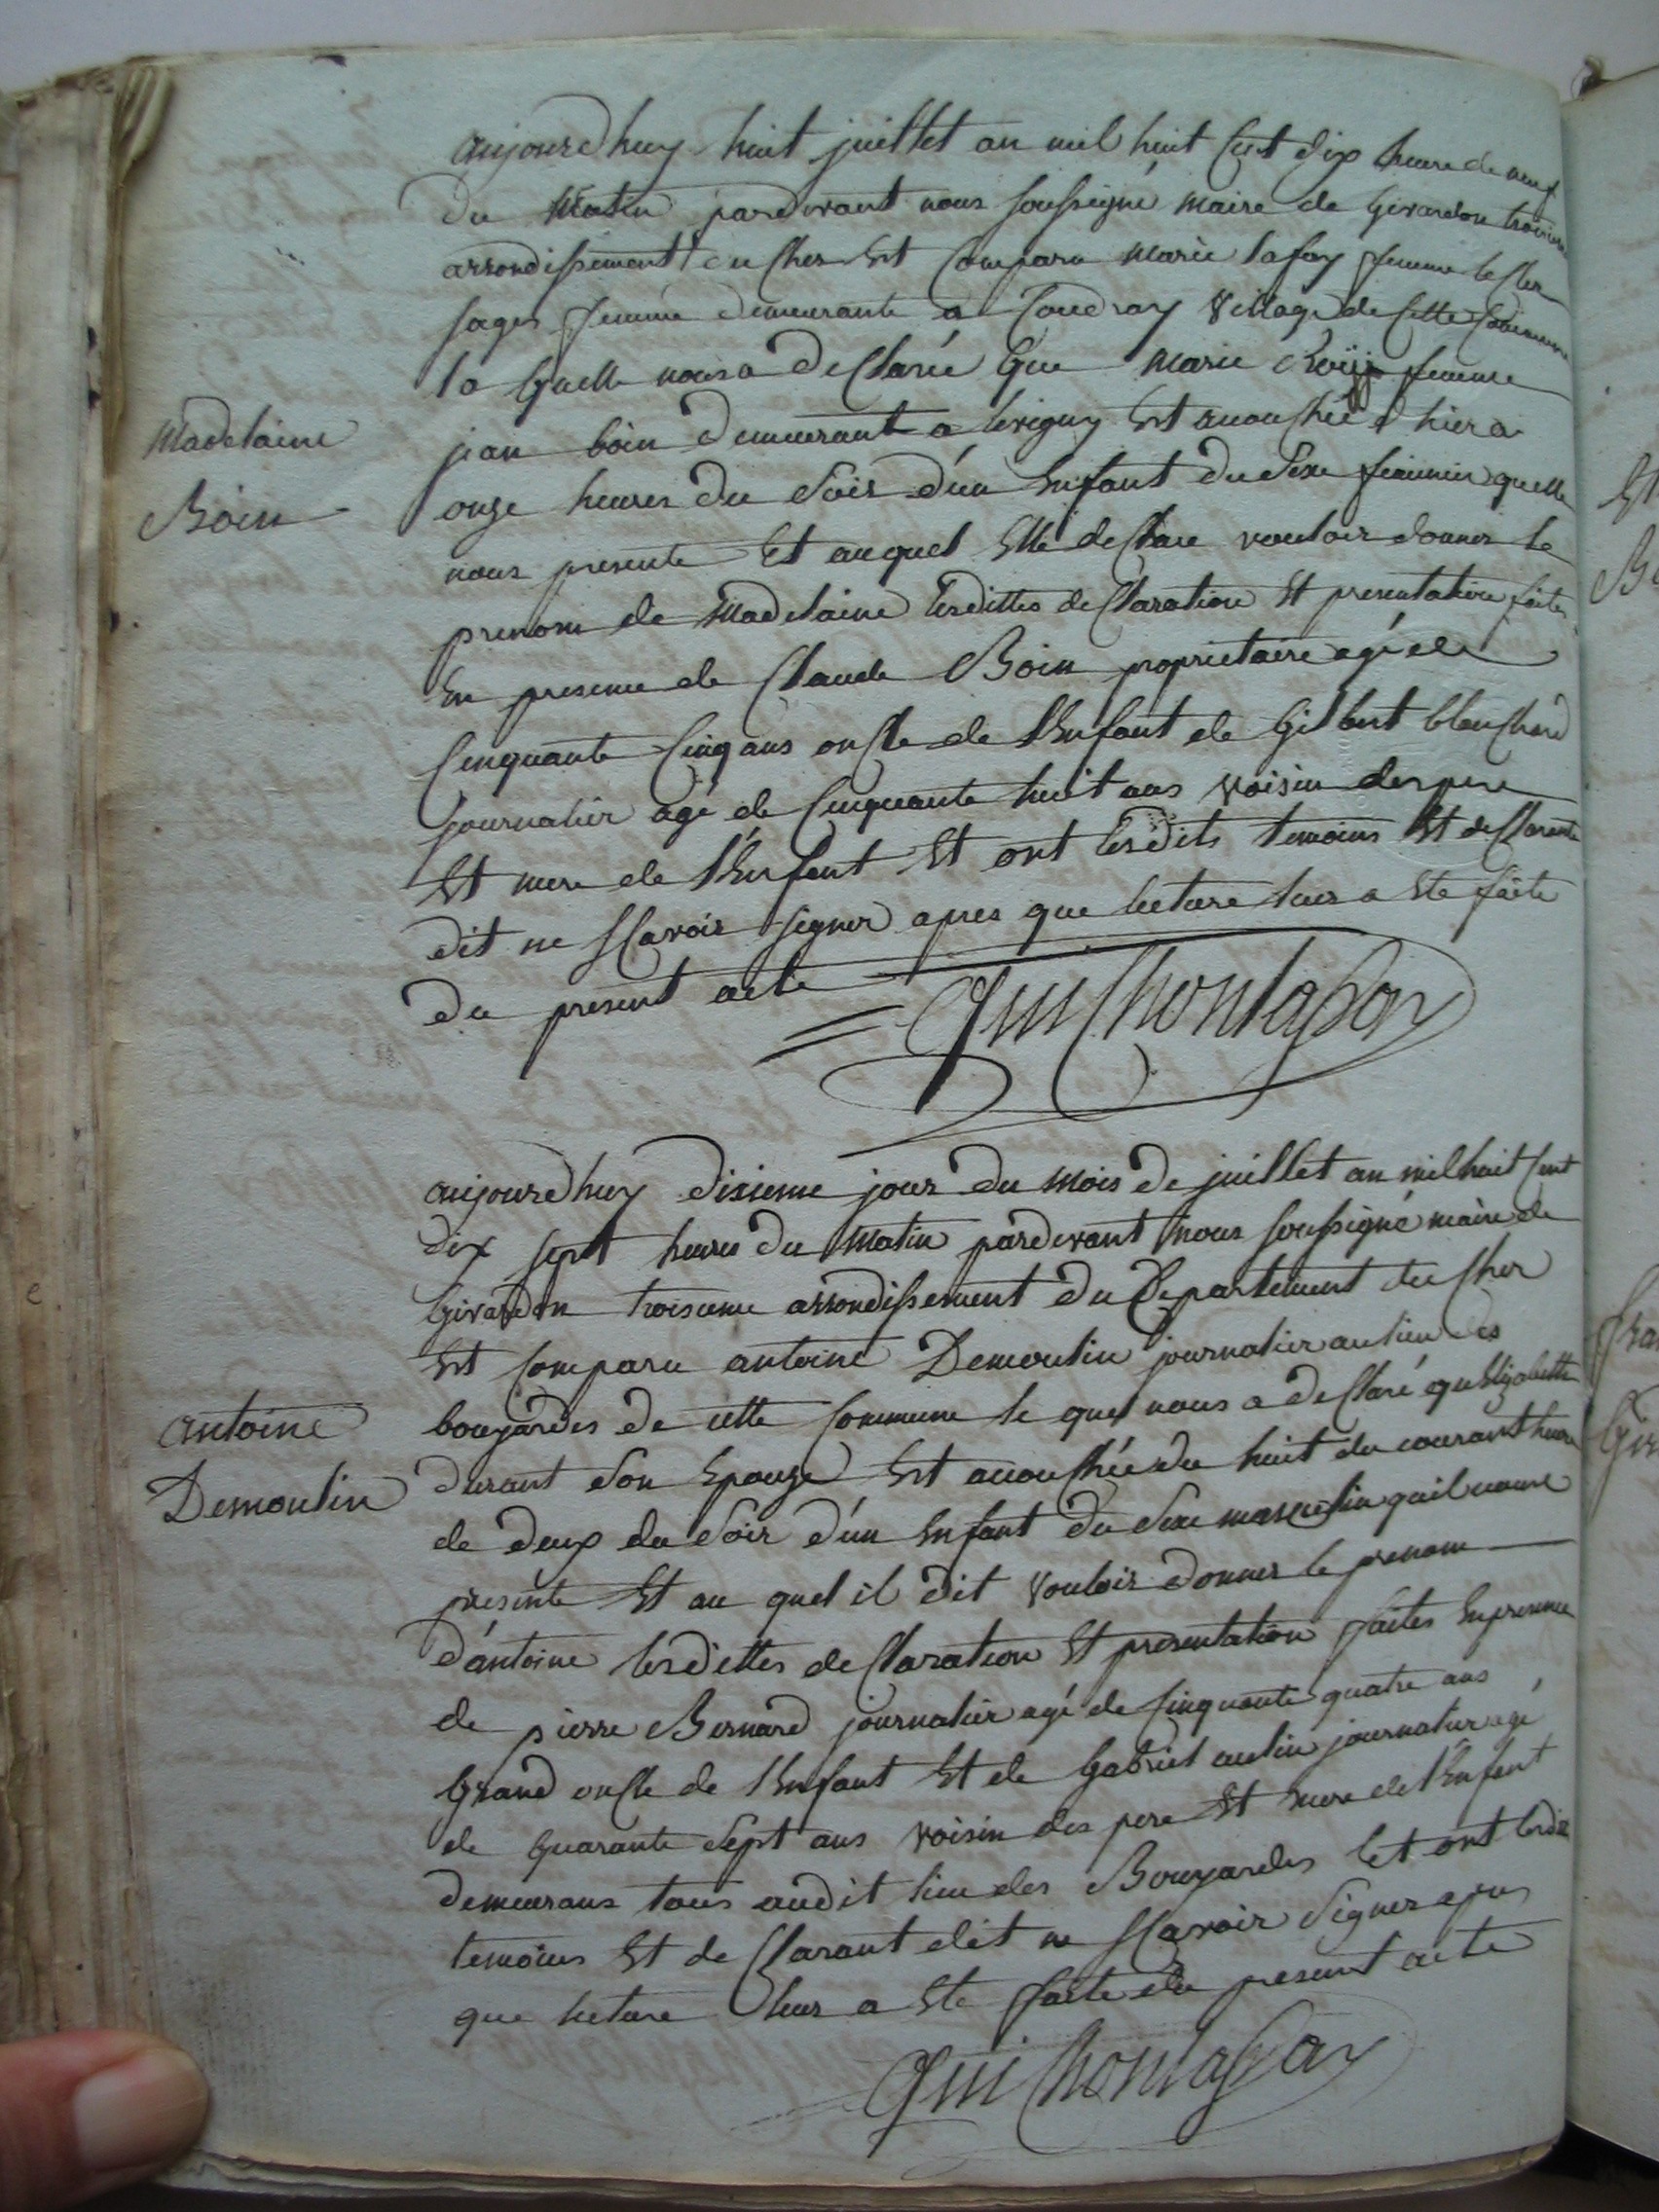 aujourdhuy huit juillet an mil huit cent dix heure de neuf
du matin pardevant nous soussigné maire de Givardon troisieme
arrondissement du Cher est comparu marie lafoy femme le Cler
sages femme demeurante a Coudray village de cette commune
la quelle nous a declarée que marie femme
Madelaine
Boin
jean boin demeurant a est accouchée d'hier a
onze heures du soir d'un enfant du sexe feminin quelle
nous presente et auquel elle declare vouloir donner le
prenom de Madelaine lesdittes declaration et presentation faites
en presence de Claude Boin proprietaire agé de
cinquante cinq ans oncle de l'enfant de Gilbert blanchard
journalier agé de cinquante huit ans voisin des pere
et mere de l'enfent et ont lesdits temoins et declarante
dit ne scavoir signer apres que lecture leur a ete faite
du present acte
aujourdhuy dixieme jour du mois de juillet an mil huit cent
dix sept heures du matin pardevant nous soussigné maire de
Givardon troisieme arrondissement du Departement du Cher
est comparu antoine Demoulin journalier au lieu des
antoine
Demoulin
bougardes de cette commune le quel nous a declaré qu'Elizabette
durant son epouze est accouchée du huit du courant heure
de deux du soir d'un enfant du sexe masculin quil nous
presente et au quel il dit vouloir donner le prenom
d'antoine lesdittes declaration et presentation faites en presence
de pierre Bernard journalier agé de cinquante quatre ans
grand oncle de l'enfant et de Gabriel aulin journalier agé
de quarante sept ans voisin des pere et mere de l'enfent
demeurans tous audit lieu des Bougardes et ont lesdits
temoins et declarant dit ne scavoir signer apres
que lecture leur a ete faite du present acte